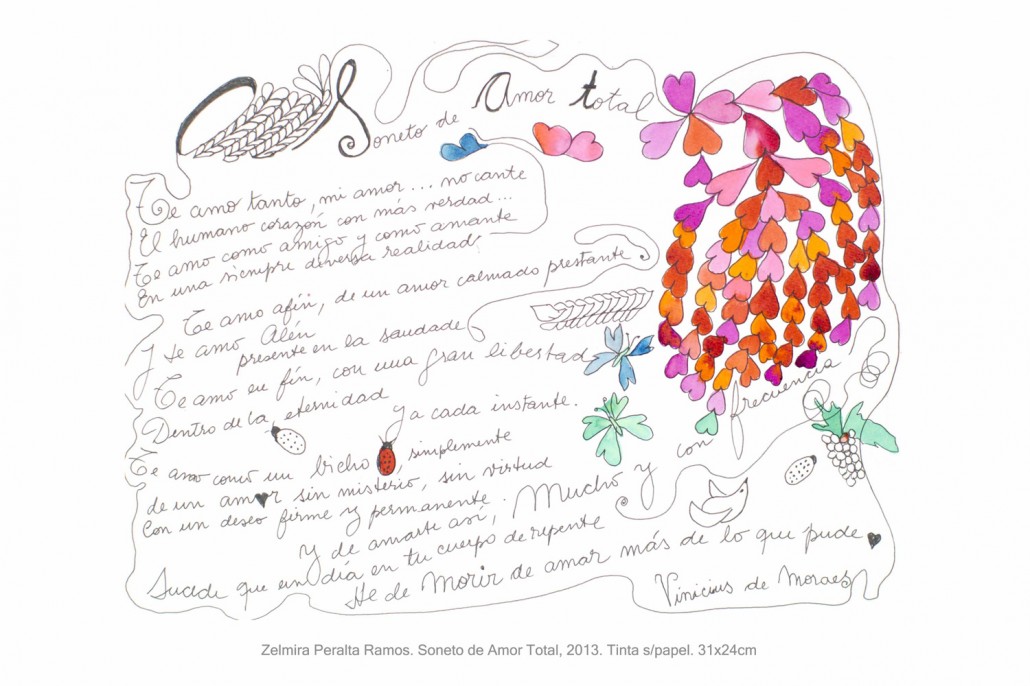 Soneto de Amor total
Te amo tanto, mi amor... no cante
El humano corazón con más verdad...
Te amo como amigo y como amante
En una siempre diversa realidad.
Te amo afín, de un amor calmado prestante
y te amo Além
presente en la saudade
Te amo en fin, con una gran libertad
Dentro de la eternidad
y a cada instante.
Te amo como un bicho, simplemente
de un amor sin misterio, sin virtud
Con un deseo firme y permanente.
Y de amarte así, Mucho y con frecuencia
Sucede que un día en tu cuerpo de repente
He de Morir de amar más de lo que pude
Vinicius de Moraes
Zelmira Peralta Ramos. Soneto de Amor Total, 2013. Tinta s/papel. 31x24cm